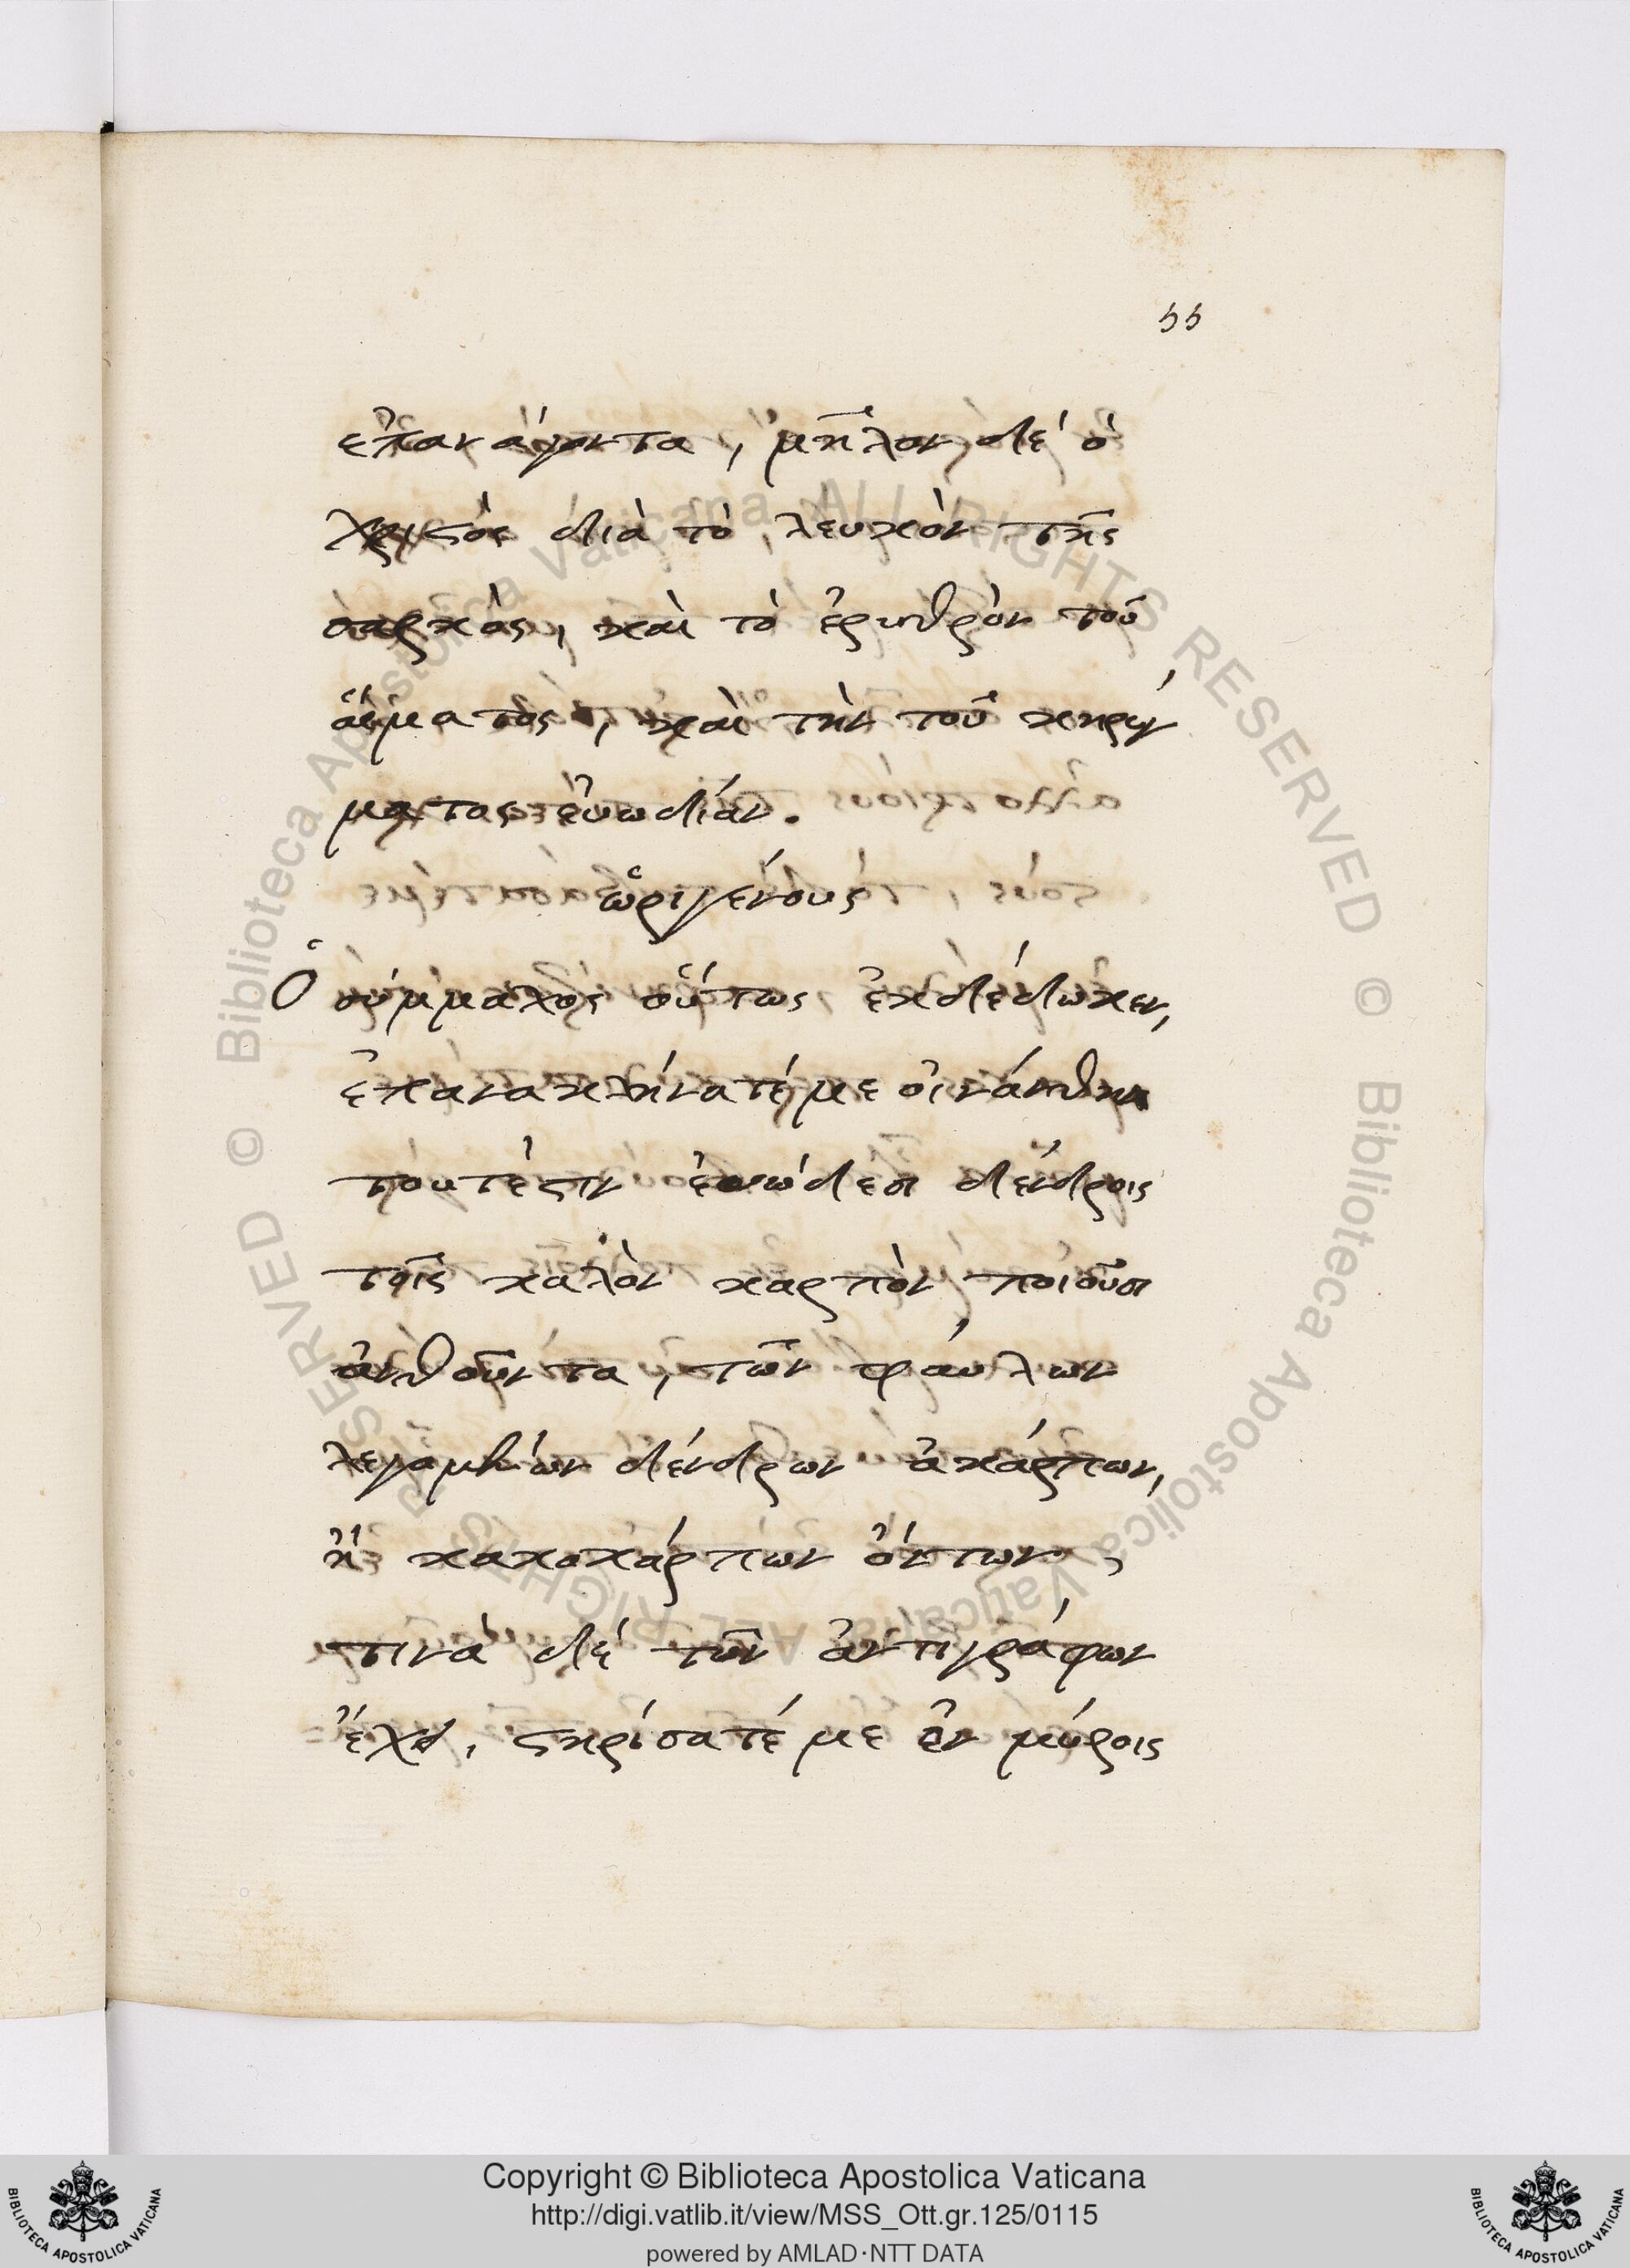 55
ἐπανάγοντα, μῆλον δὲ ὁ
χριστὸς διὰ τὸ λευκὸν τῆς
σαρκὸς, καὶ τὸ ἐρυθρὸν τοῦ
αἵματος, καὶ τὴν τοῦ κηρύγ
ματος εὐωδίαν.
ὠριγένους
Ὁ σύμμαχος οὕτως ἐκδέδωκεν,
ἐπανακλίνατέ με οἰνάνθῃ
τουτέστιν εὐώδεσι δένδροις
τοῖς καλὸν καρπὸν ποιοῦσι
ἀνθοῦντα, τῶν φαύλων
λεγομένων δένδρων ἀκάρπων,
ἢ κακοκάρπων ὄντων
τινὰ δὲ τῶν ἀντιγράφων
ἔχει, στηρίσατέ με ἐν μύροις
© Biblioteca Apostolica Vaticana ALL RIGHTS RESERVED © Biblioteca Apostolica Vaticana ALL RIGHTS RESERVED
Copyright © Biblioteca Apostolica Vaticana
http://digi.vatlib.it/view/MSS_Ott.gr.125/0115
powered by AMLAD·NTT DATA
BIBLIOTECA APOSTOLICA VATICANA
BIBLIOTECA APOSTOLICA VATICANA